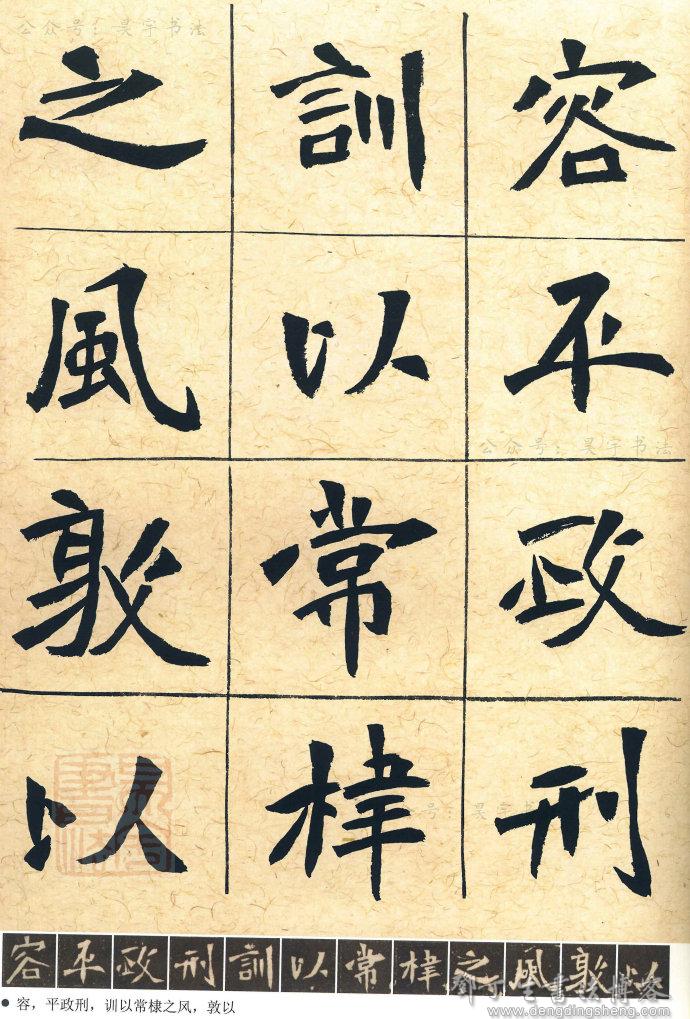 公众号：昊宇书法
容平政刑
訓以常棣
之風敦以
公众号：昊宇书法
容平政刑訓以常棣之風敦以
● 容，平政刑，训以常棣之风，敦以
鄧丁生書法博客
www.dengdingsheng.com